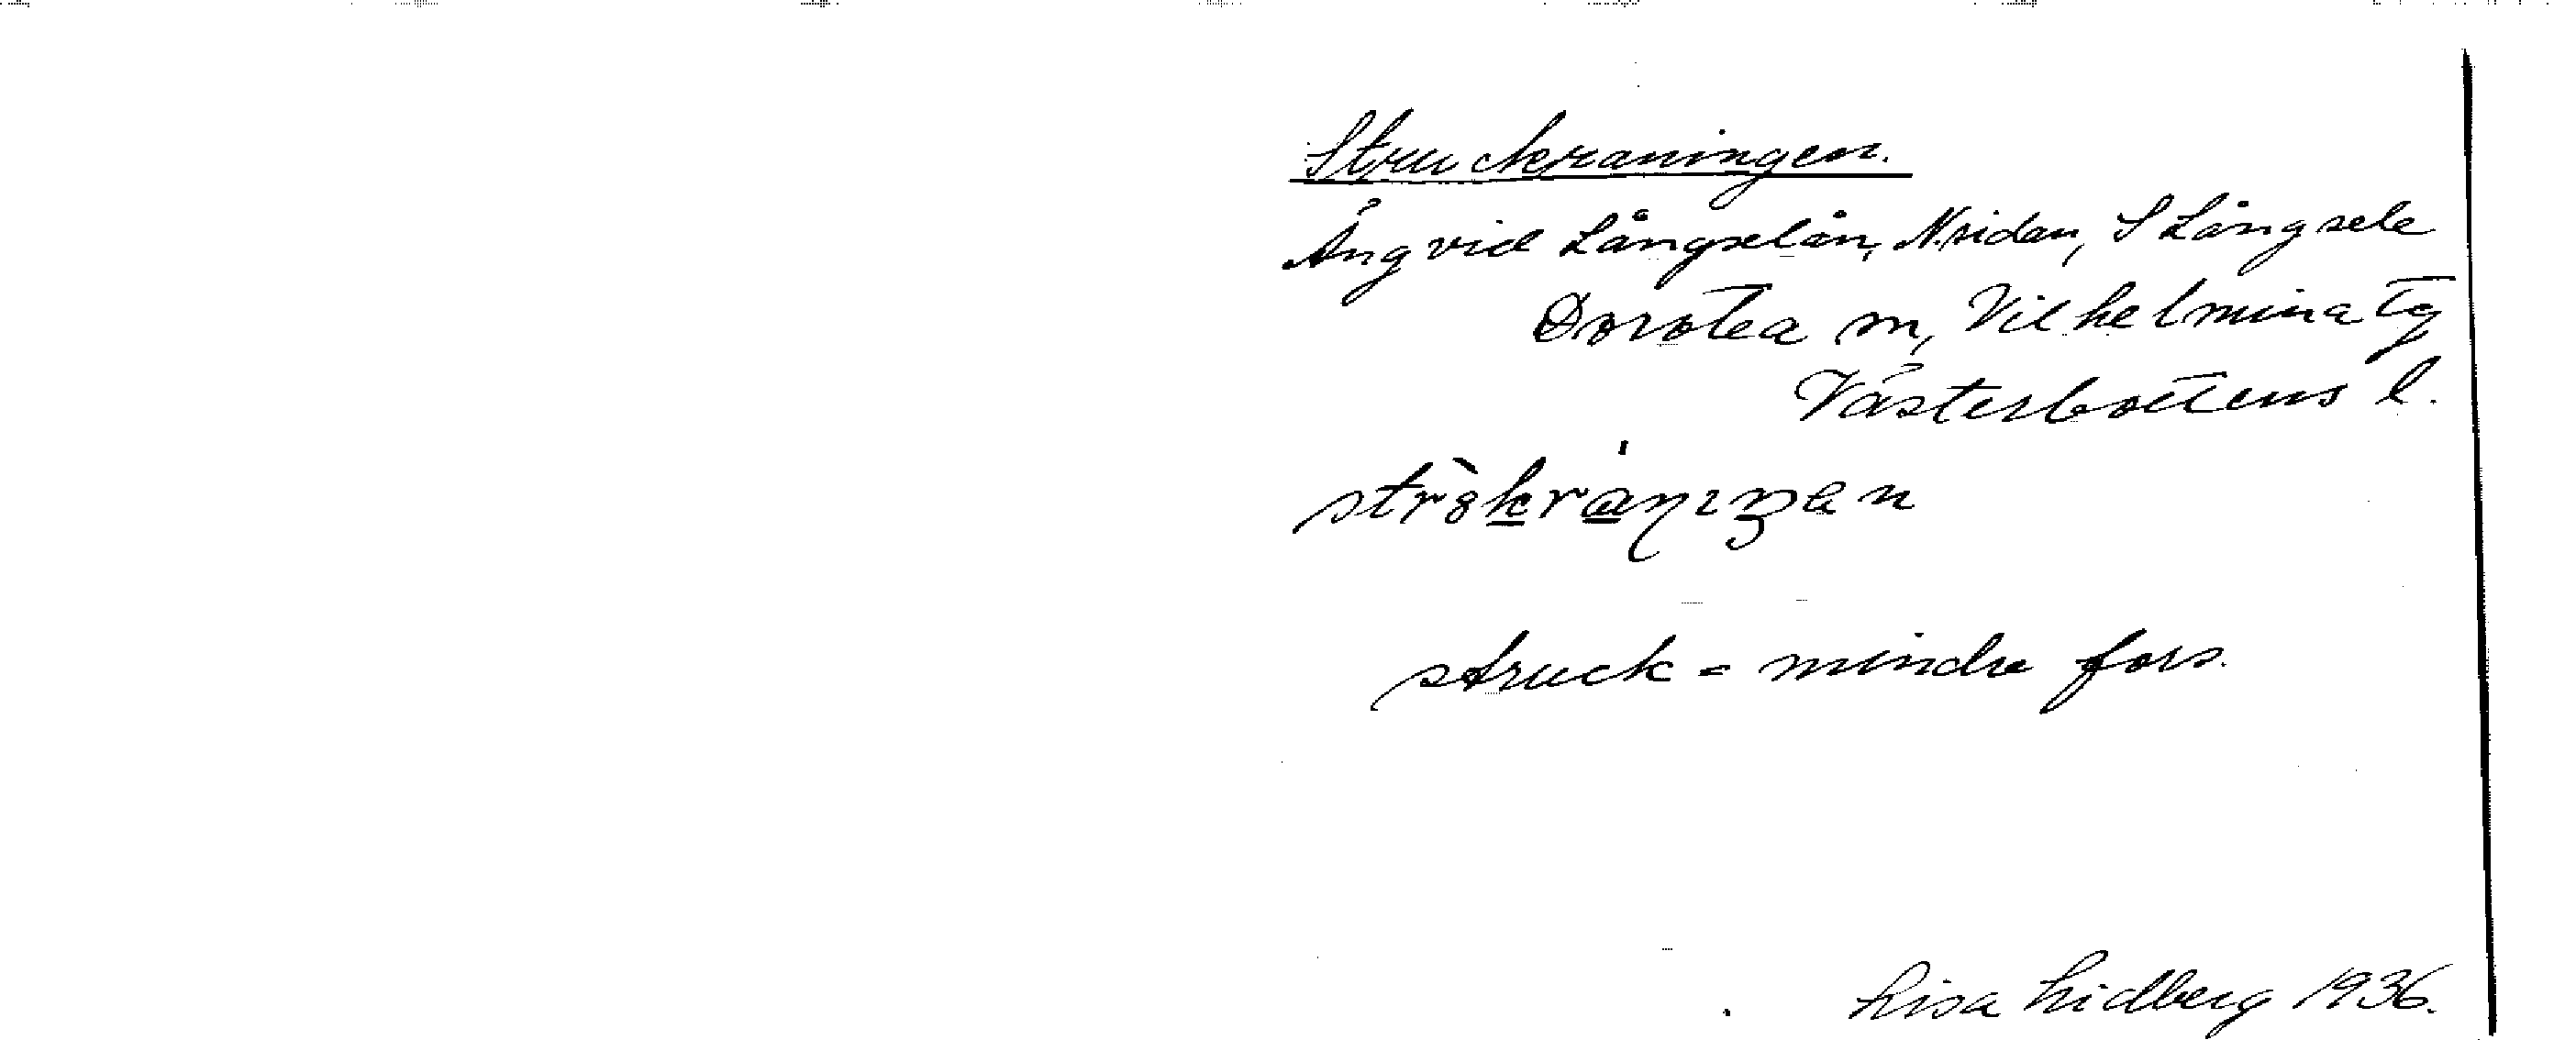 Struckraningen.
Äng vid Långselån, N.sidan, S Långsele
Dorotea sn, Vilhelmina tg
Västerbottens l.
struck = mindre fors.
Lisa Lidberg 1936.